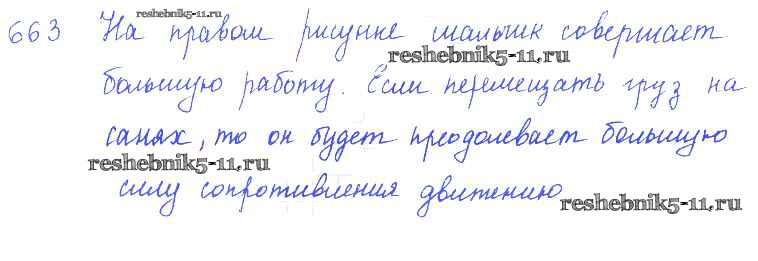 reshebnik5-11.ru
663 На правом рисунке мальчик совершает
reshebnik5-11.ru
большую работу. Если перемещать груз на
санях, то он будет преодолевает большую
reshebnik5-11.ru
силу сопротивления движению
reshebnik5-11.ru